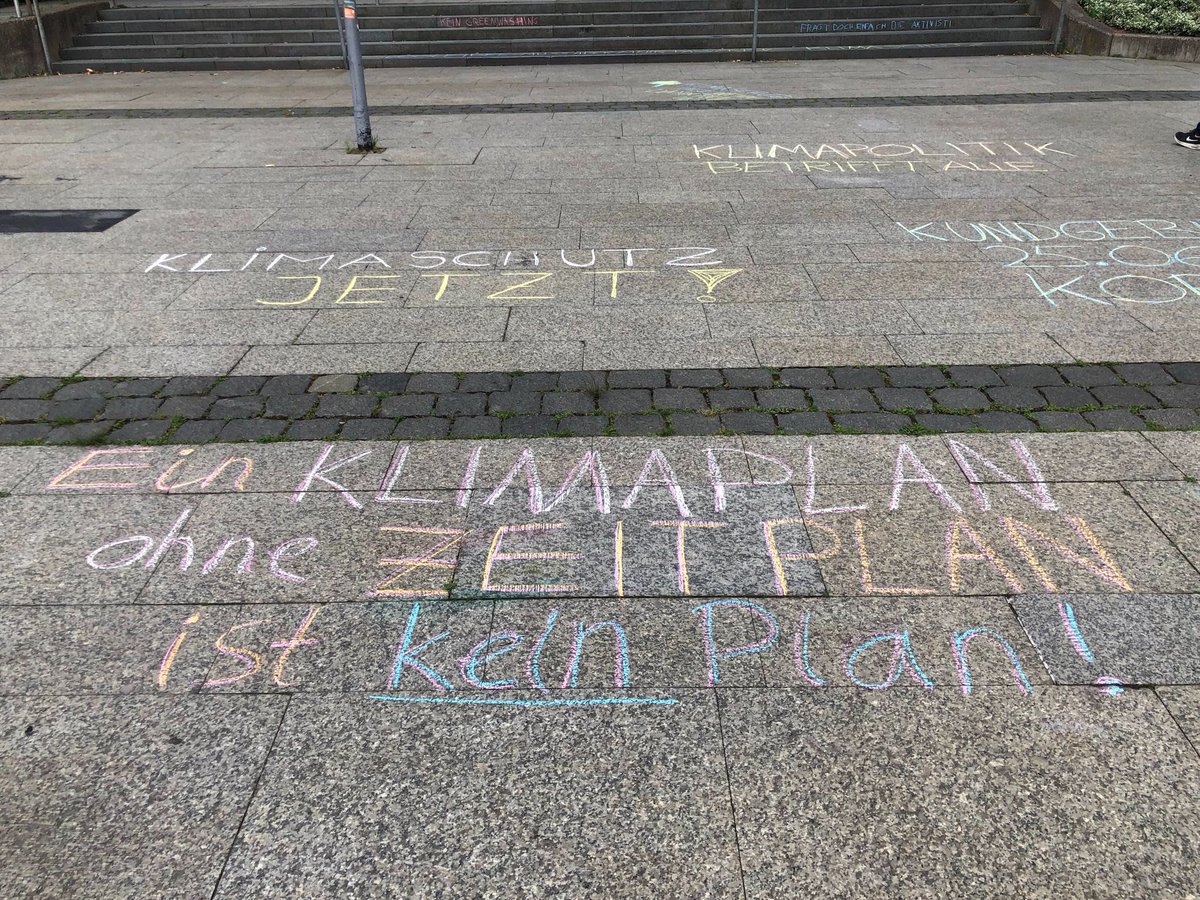 KEIN GREENWASHING
FRAGT DOCH EINFACH DIE AKTIVISTI
KLIMAPOLITIK
BETRIFFT ALLE
KLIMASCHUTZ
JETZT!
25.00
Ein KLIMAPLAN
ohne ZEITPLAN
ist kein Plan!